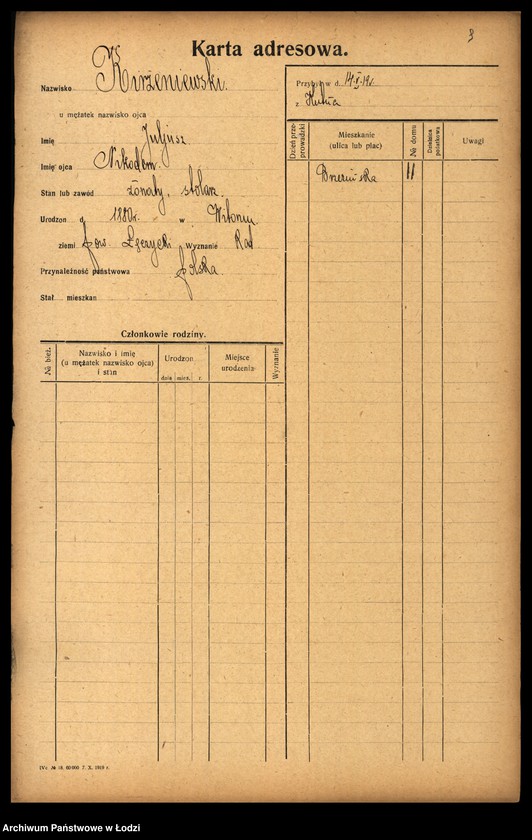 3
Karta adresowa.
Nazwisko Kirżeniewski.
u mężatek nazwisko ojca
Imię Juljusz
Imię ojca Nikodem
Stan lub zawód żonaty, stolarz
Urodzon d. 1880r. w Witoniu
ziemi pow. Łęczycki wyznanie Kat
Przynależność państwowa polska
Stał. mieszkan
Członkowie rodziny.
№ bież.
Nazwisko i imię
(u mężatek nazwisko ojca)
i stan
Urodzon
dnia mies. r.
Miejsce
urodzenia
Wyznanie
Przybył w d.
z Kutna
Dzień prze-
prowadzki
Mieszkanie
(ulica lub plac)
№ domu
Dzielnica
podatkowa
Uwagi
Brzezińska 11
60000 7. X. 1919 r.
Archiwum Państwowe w Łodzi